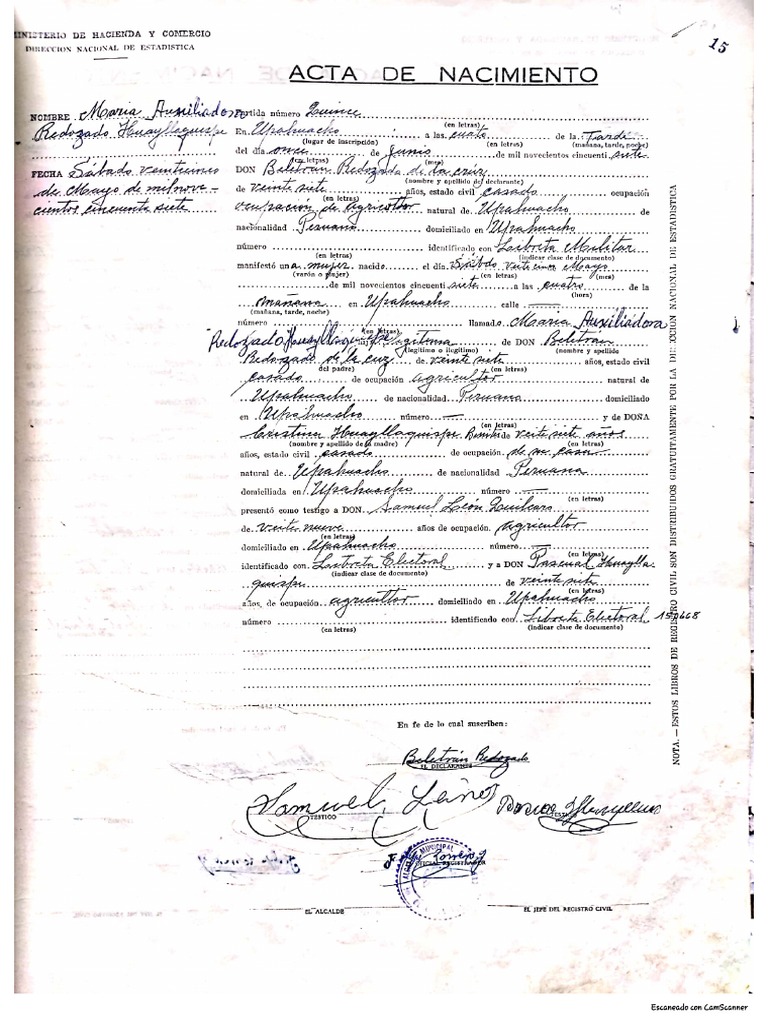 MINISTERIO DE HACIENDA Y COMERCIO
DIRECCION NACIONAL DE ESTADISTICA
15
ACTA DE NACIMIENTO
NOMBRE Maria Auxiliadora
Redozado Huayllaquispe
FECHA Sábado veinticinco
de Mayo de mil nove-
cientos cincuenta siete
Partida número Quince
(en letras)
En Upahuacho a las cuatro de la Tarde
(lugar de inscripción) (en letras) (mañana, tarde, noche)
del día once de Junio de mil novecientos cincuenti siete
(en letras) (mes)
DON Beltran Redozado de la cruz
(nombre y apellido del declarante)
de veinte siete años, estado civil casado ocupación
(en letras)
ocupación de agricultor natural de Upahuacho de
nacionalidad Peruana domiciliado en Upahuacho
número identificado con Libreta Militar
(en letras) (indicar clase de documento)
manifestó una mujer nacido el día Sábdo veite cinco Mayo
(varón o mujer) (mes)
de mil novecientos cincuenti siete a las cuatro de la
(hora)
mañana en Upahuacho calle —
(mañana, tarde, noche)
número llamado Maria Auxiliadora
(en letras)
Redozado Huayllaquispe legitima de DON Beltran
(legítimo o ilegítimo) (nombre y apellido
Redozado de la cuz de veinte siete años, estado civil
del padre) (en letras)
casado de ocupación agricultor natural de
Upahuacho de nacionalidad Peruana domiciliado
en Upahuacho número — y de DOÑA
(en letras)
Cristina Huayllaquispe de veite siete años
(nombre y apellido de la madre) (en letras)
años, estado civil casado de ocupación de su casa
natural de Upahuacho de nacionalidad Peruana
domiciliada en Upahuacho número —
(en letras)
presentó como testigo a DON Samuel León
de veite nueve años de ocupación agricultor
(en letras)
domiciliado en Upahuacho número —
(en letras)
identificado con Libreta Electoral y a DON Pascual Huaylla
(indicar clase de documento)
quispe de veinte siete
(en letras)
años, de ocupación agricultor domiciliado en Upahuacho
número identificado con Libreta Electoral
(en letras) (indicar clase de documento)
En fe de lo cual suscriben:
Beltrán Redozado
EL DECLARANTE
Samuel
TESTIGO
TESTIGO
OFICIAL REGISTRADOR
MUNICIPAL
EL ALCALDE EL JEFE DEL REGISTRO CIVIL
NOTA.—ESTOS LIBROS DE REGISTRO CIVIL SON DISTRIBUIDOS GRATUITAMENTE POR LA DIRECCION NACIONAL DE ESTADISTICA
Escaneado con CamScanner